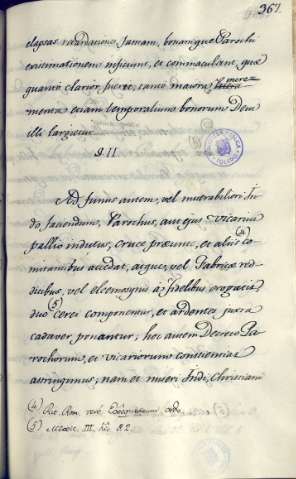 367.
elapsas rationes, famam, bonamque Parochi
existimationem inficiunt, et commaculant, quæ
quantò clarior fuerit, tantò maiora
menta etiam temporalium bonorum Deus
illi largietur.
§. II
Ad funus autem, vel miserabilioris In-
do, faciendum, Parochus, aut ejus Vicarius
pallio indutus, Cruce præeunte, et aliis (4) co-
mitantibus accedat, atque, vel Fabricæ red-
ditibus, vel eleemosynis à fidelibus erogatis
duo (5) cerei componentur, et ardentes juxta
cadaver ponantur; hoc autem Decreto Pa-
rochorum, et Vicariorum conscientias
astringimus, nam et miseri Indi, Christiani
(4) Rit. Rom.
(5) III.